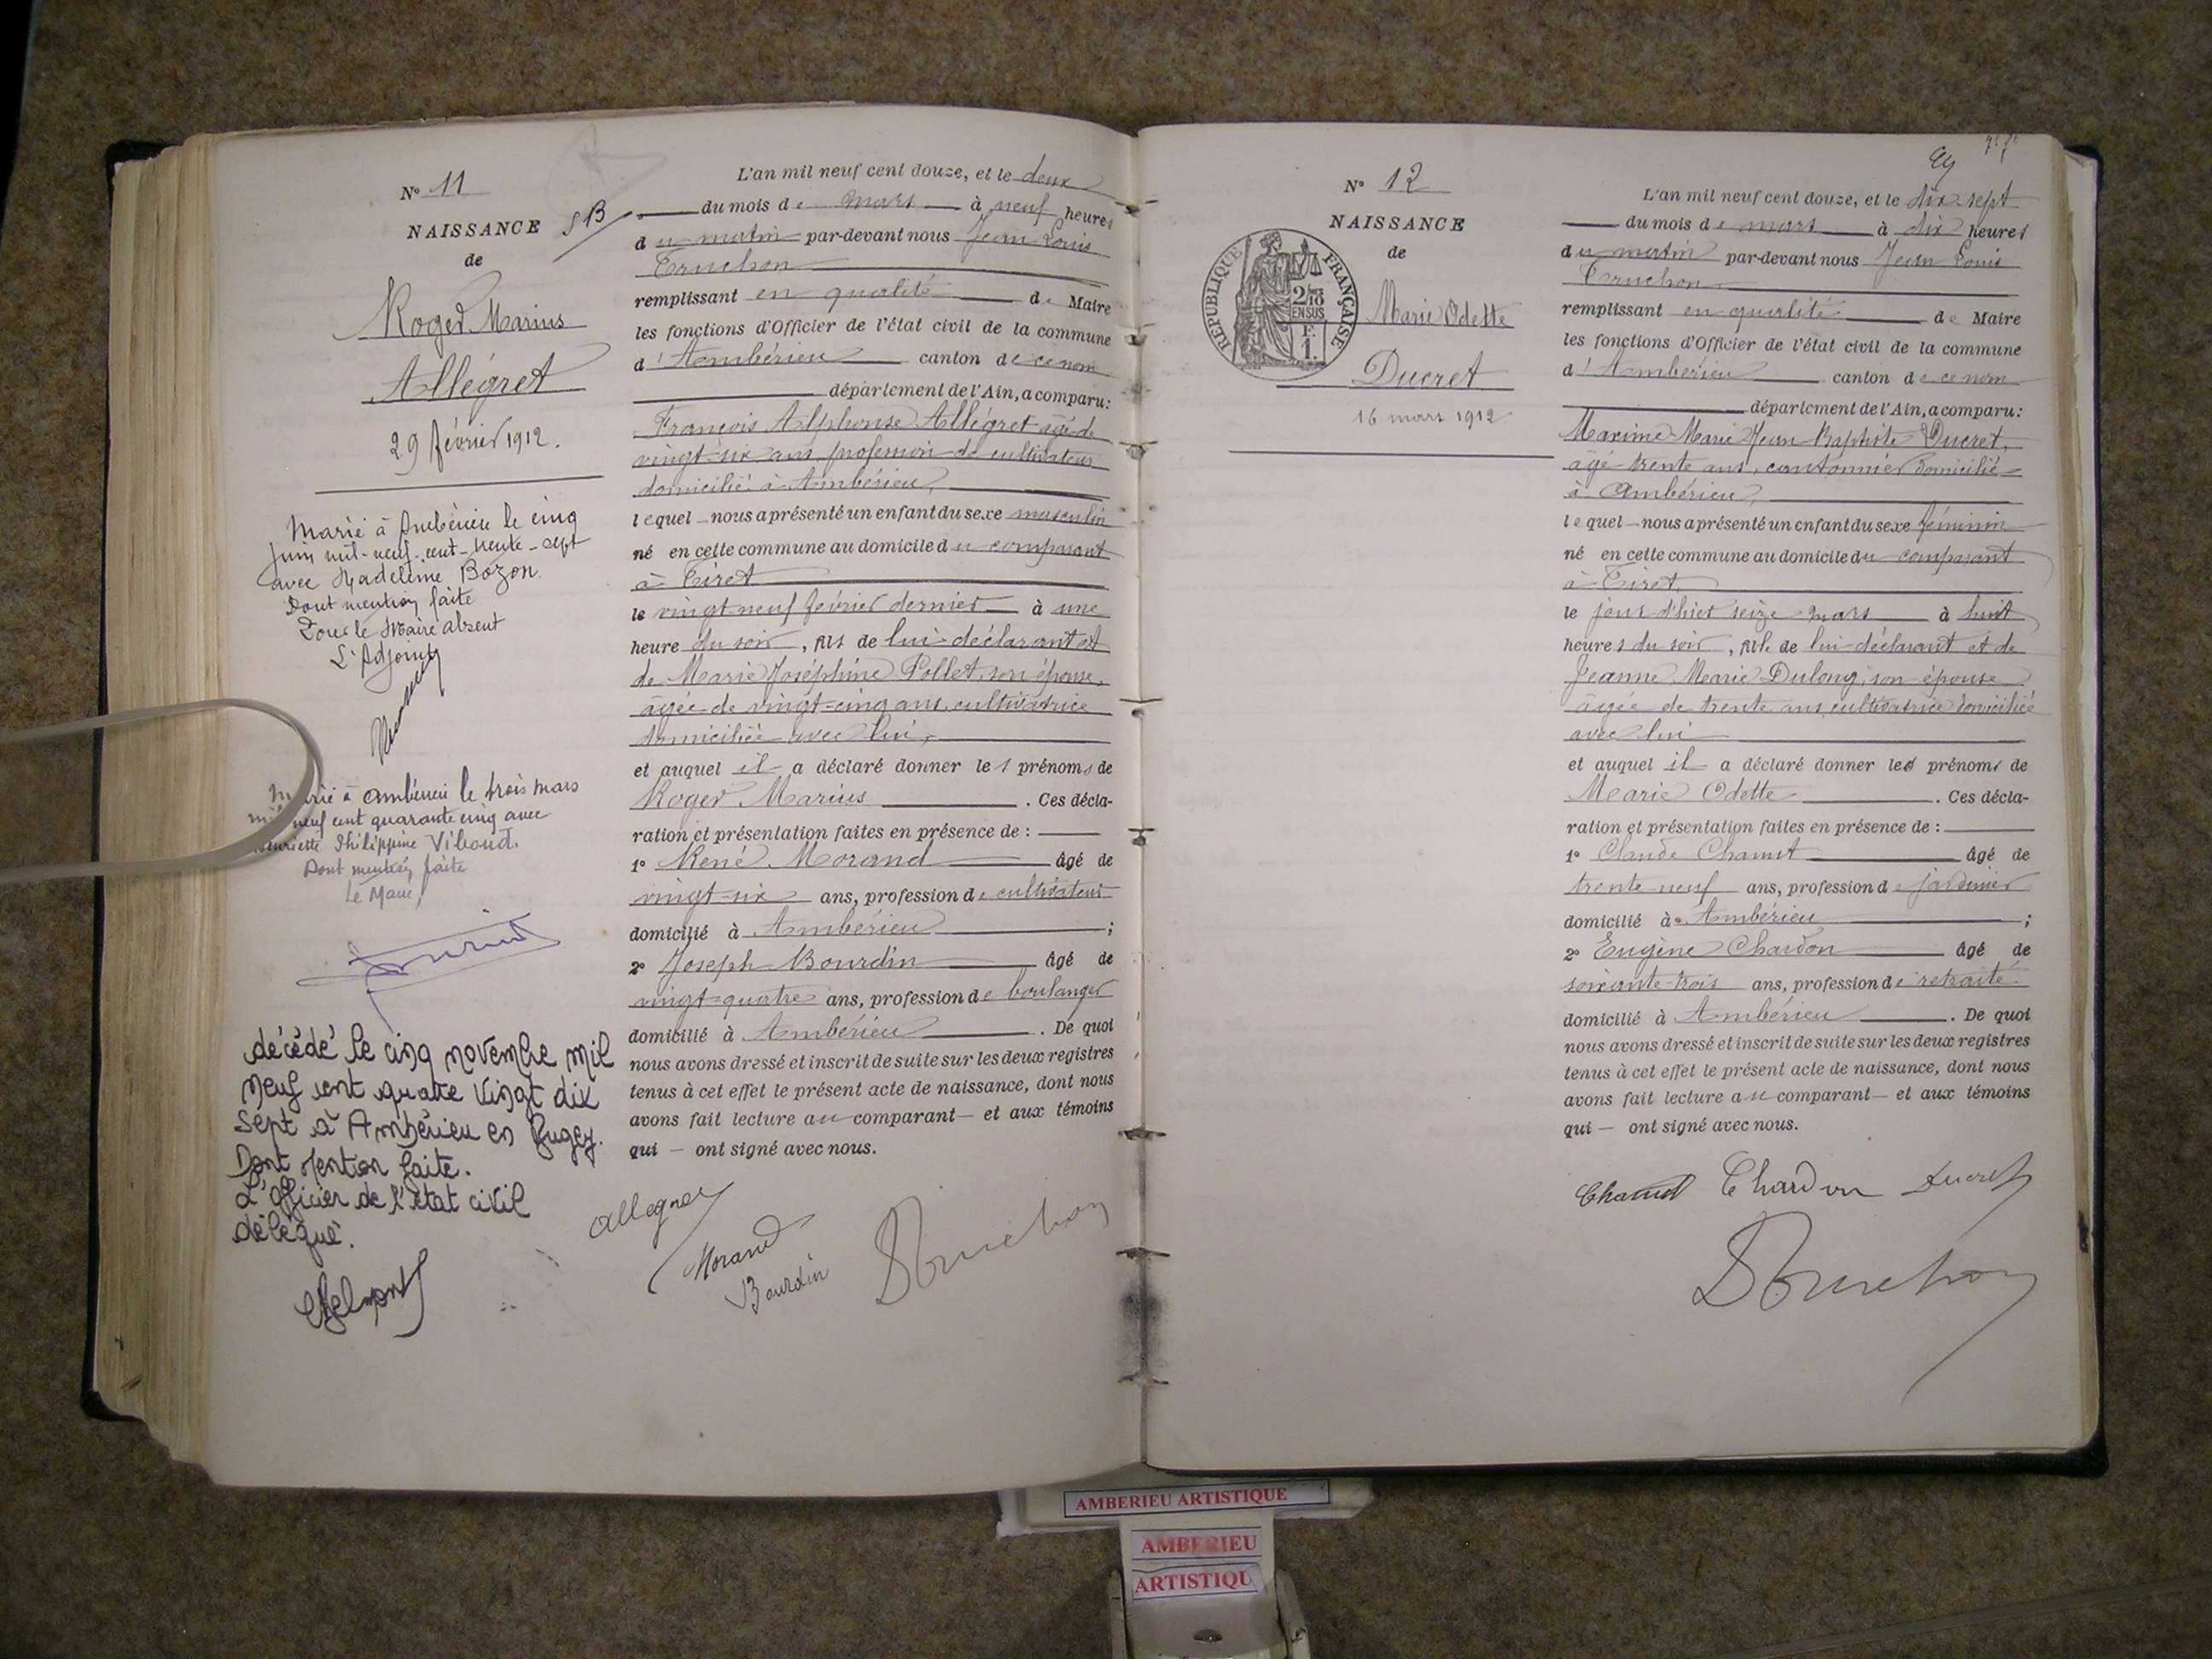 N° 11
NAISSANCE
de
Roger Marius
Allégret
29 février 1912.
Marié à Ambérieu le cinq
juin mil-neuf-cent-trente-sept
avec Madeleine Bozon.
Dont mention faite
Pour le Maire absent
L'Adjoint
Marié à Ambérieu le trois mars
mil neuf cent quarante cinq avec
Henriette Philippine Viboud.
Dont mention faite
Le Maire,
décédé le cinq novembre mil
neuf cent quatre vingt dix
sept à Ambérieu en Bugey.
Dont mention faite.
L'officier de l'état civil
délégué.
L'an mil neuf cent douze, et le deux
du mois de mars à neuf heures
du matin par-devant nous Jean Louis
Truchon
remplissant en qualité de Maire
les fonctions d'Officier de l'état civil de la commune
d'Ambérieu canton de ce nom
département de l'Ain, a comparu:
François Alphonse Allégret âgé de
vingt-six ans, profession de cultivateur
domicilié à Ambérieu,
lequel nous a présenté un enfant du sexe masculin
né en cette commune au domicile du comparant
à Tiret
le vingt-neuf février dernier à une
heure du soir, fils de lui-déclarant et
de Marie Joséphine Pollet, son épouse,
âgée de vingt-cinq ans, cultivatrice
domiciliée avec lui,
et auquel il a déclaré donner les prénoms de
Roger Marius . Ces décla-
ration et présentation faites en présence de :
1° René Morand âgé de
vingt-six ans, profession de cultivateur
domicilié à Ambérieu ;
2° Joseph Bourdin âgé de
vingt-quatre ans, profession de boulanger
domicilié à Ambérieu . De quoi
nous avons dressé et inscrit de suite sur les deux registres
tenus à cet effet le présent acte de naissance, dont nous
avons fait lecture au comparant et aux témoins
qui ont signé avec nous.
Allegret
Morand
Bourdin
Truchon
N° 12
NAISSANCE
de
REPUBLIQUE FRANÇAISE
2/10
EN SUS
F.
1.
Marie Odette
Ducret
16 mars 1912
L'an mil neuf cent douze, et le dix sept
du mois de mars à dix heures
du matin par-devant nous Jean Louis
Truchon
remplissant en qualité de Maire
les fonctions d'Officier de l'état civil de la commune
d'Ambérieu canton de ce nom
département de l'Ain, a comparu:
Maxime Marie Jean Baptiste Ducret,
âgé trente ans, cantonnier domicilié
à Ambérieu,
lequel nous a présenté un enfant du sexe féminin
né en cette commune au domicile du comparant
à Tiret,
le jour d'hier seize mars à huit
heures du soir, fille de lui-déclarant et de
Jeanne Marie Dulong, son épouse
âgée de trente ans, cultivatrice domiciliée
avec lui
et auquel il a déclaré donner les prénoms de
Marie Odette . Ces décla-
ration et présentation faites en présence de :
1° Claude Chamut âgé de
trente neuf ans, profession de jardinier
domicilié à Ambérieu ;
2° Eugène Chardon âgé de
soixante-trois ans, profession de retraité.
domicilié à Ambérieu . De quoi
nous avons dressé et inscrit de suite sur les deux registres
tenus à cet effet le présent acte de naissance, dont nous
avons fait lecture au comparant et aux témoins
qui ont signé avec nous.
Chamut Chardon Ducret
Truchon
AMBERIEU ARTISTIQUE
AMBERIEU
ARTISTIQU